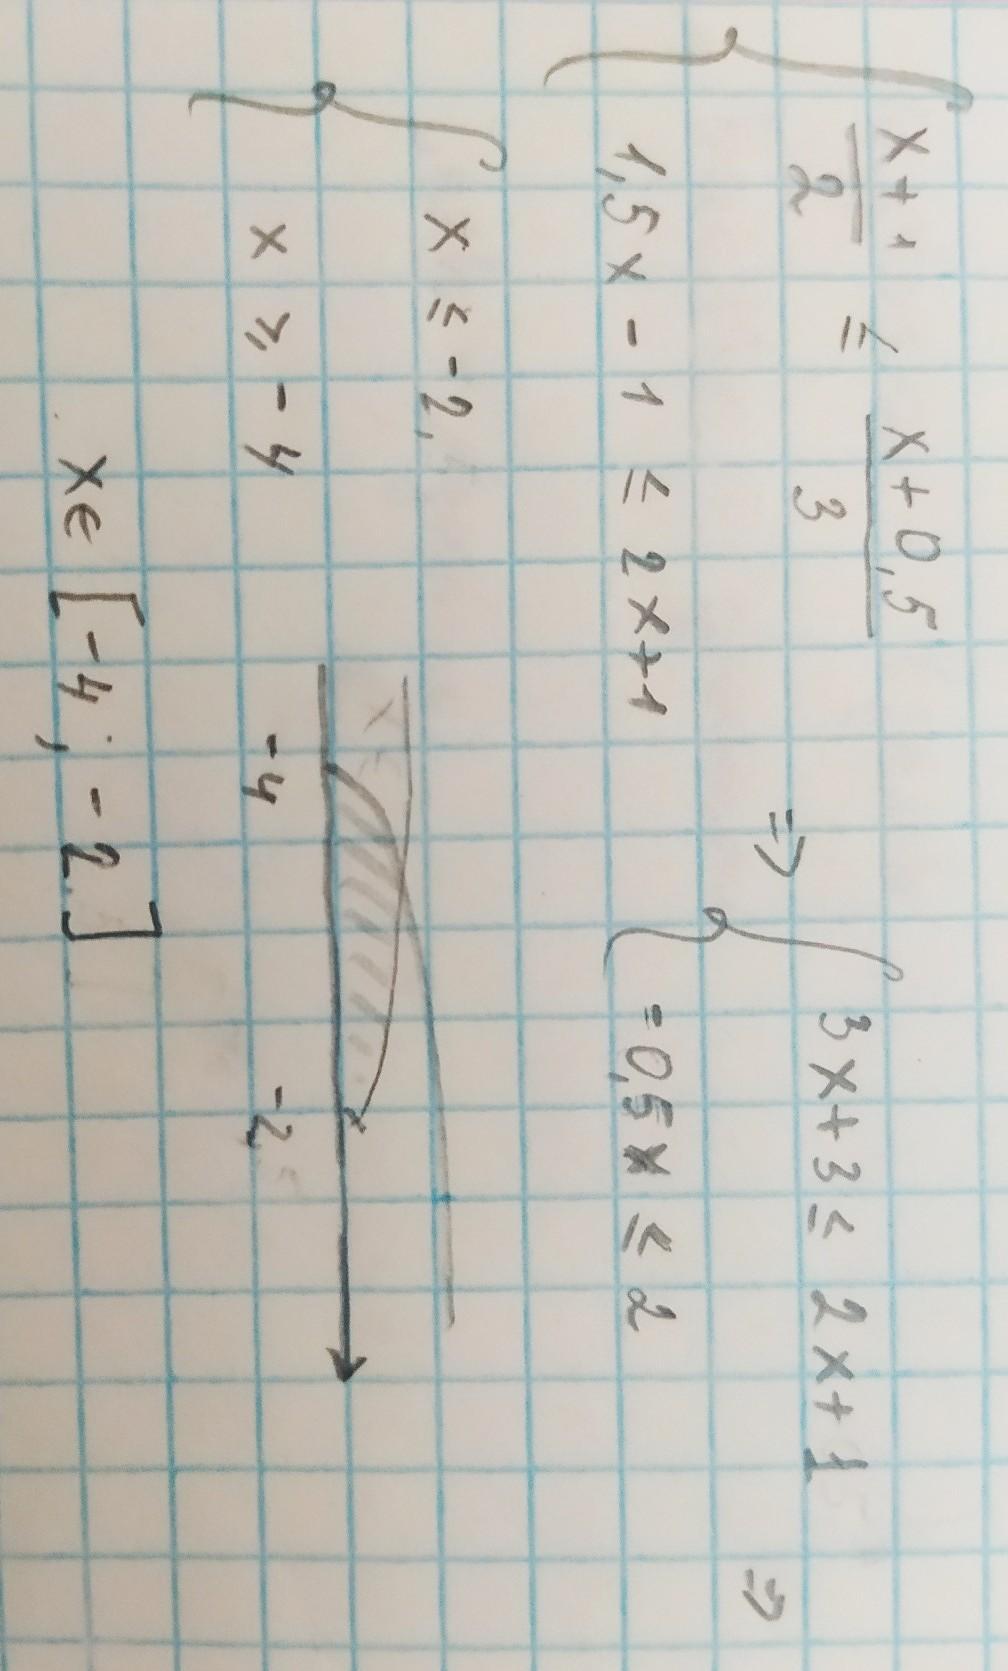 x+1/2 ≤ x+0,5/3 => 3x+3 ≤ 2x+1 =>
1,5x - 1 ≤ 2x+1 -0,5x ≤ 2
x ≤ -2,
x ≥ -4
-4 -2
x∈ [-4; -2]